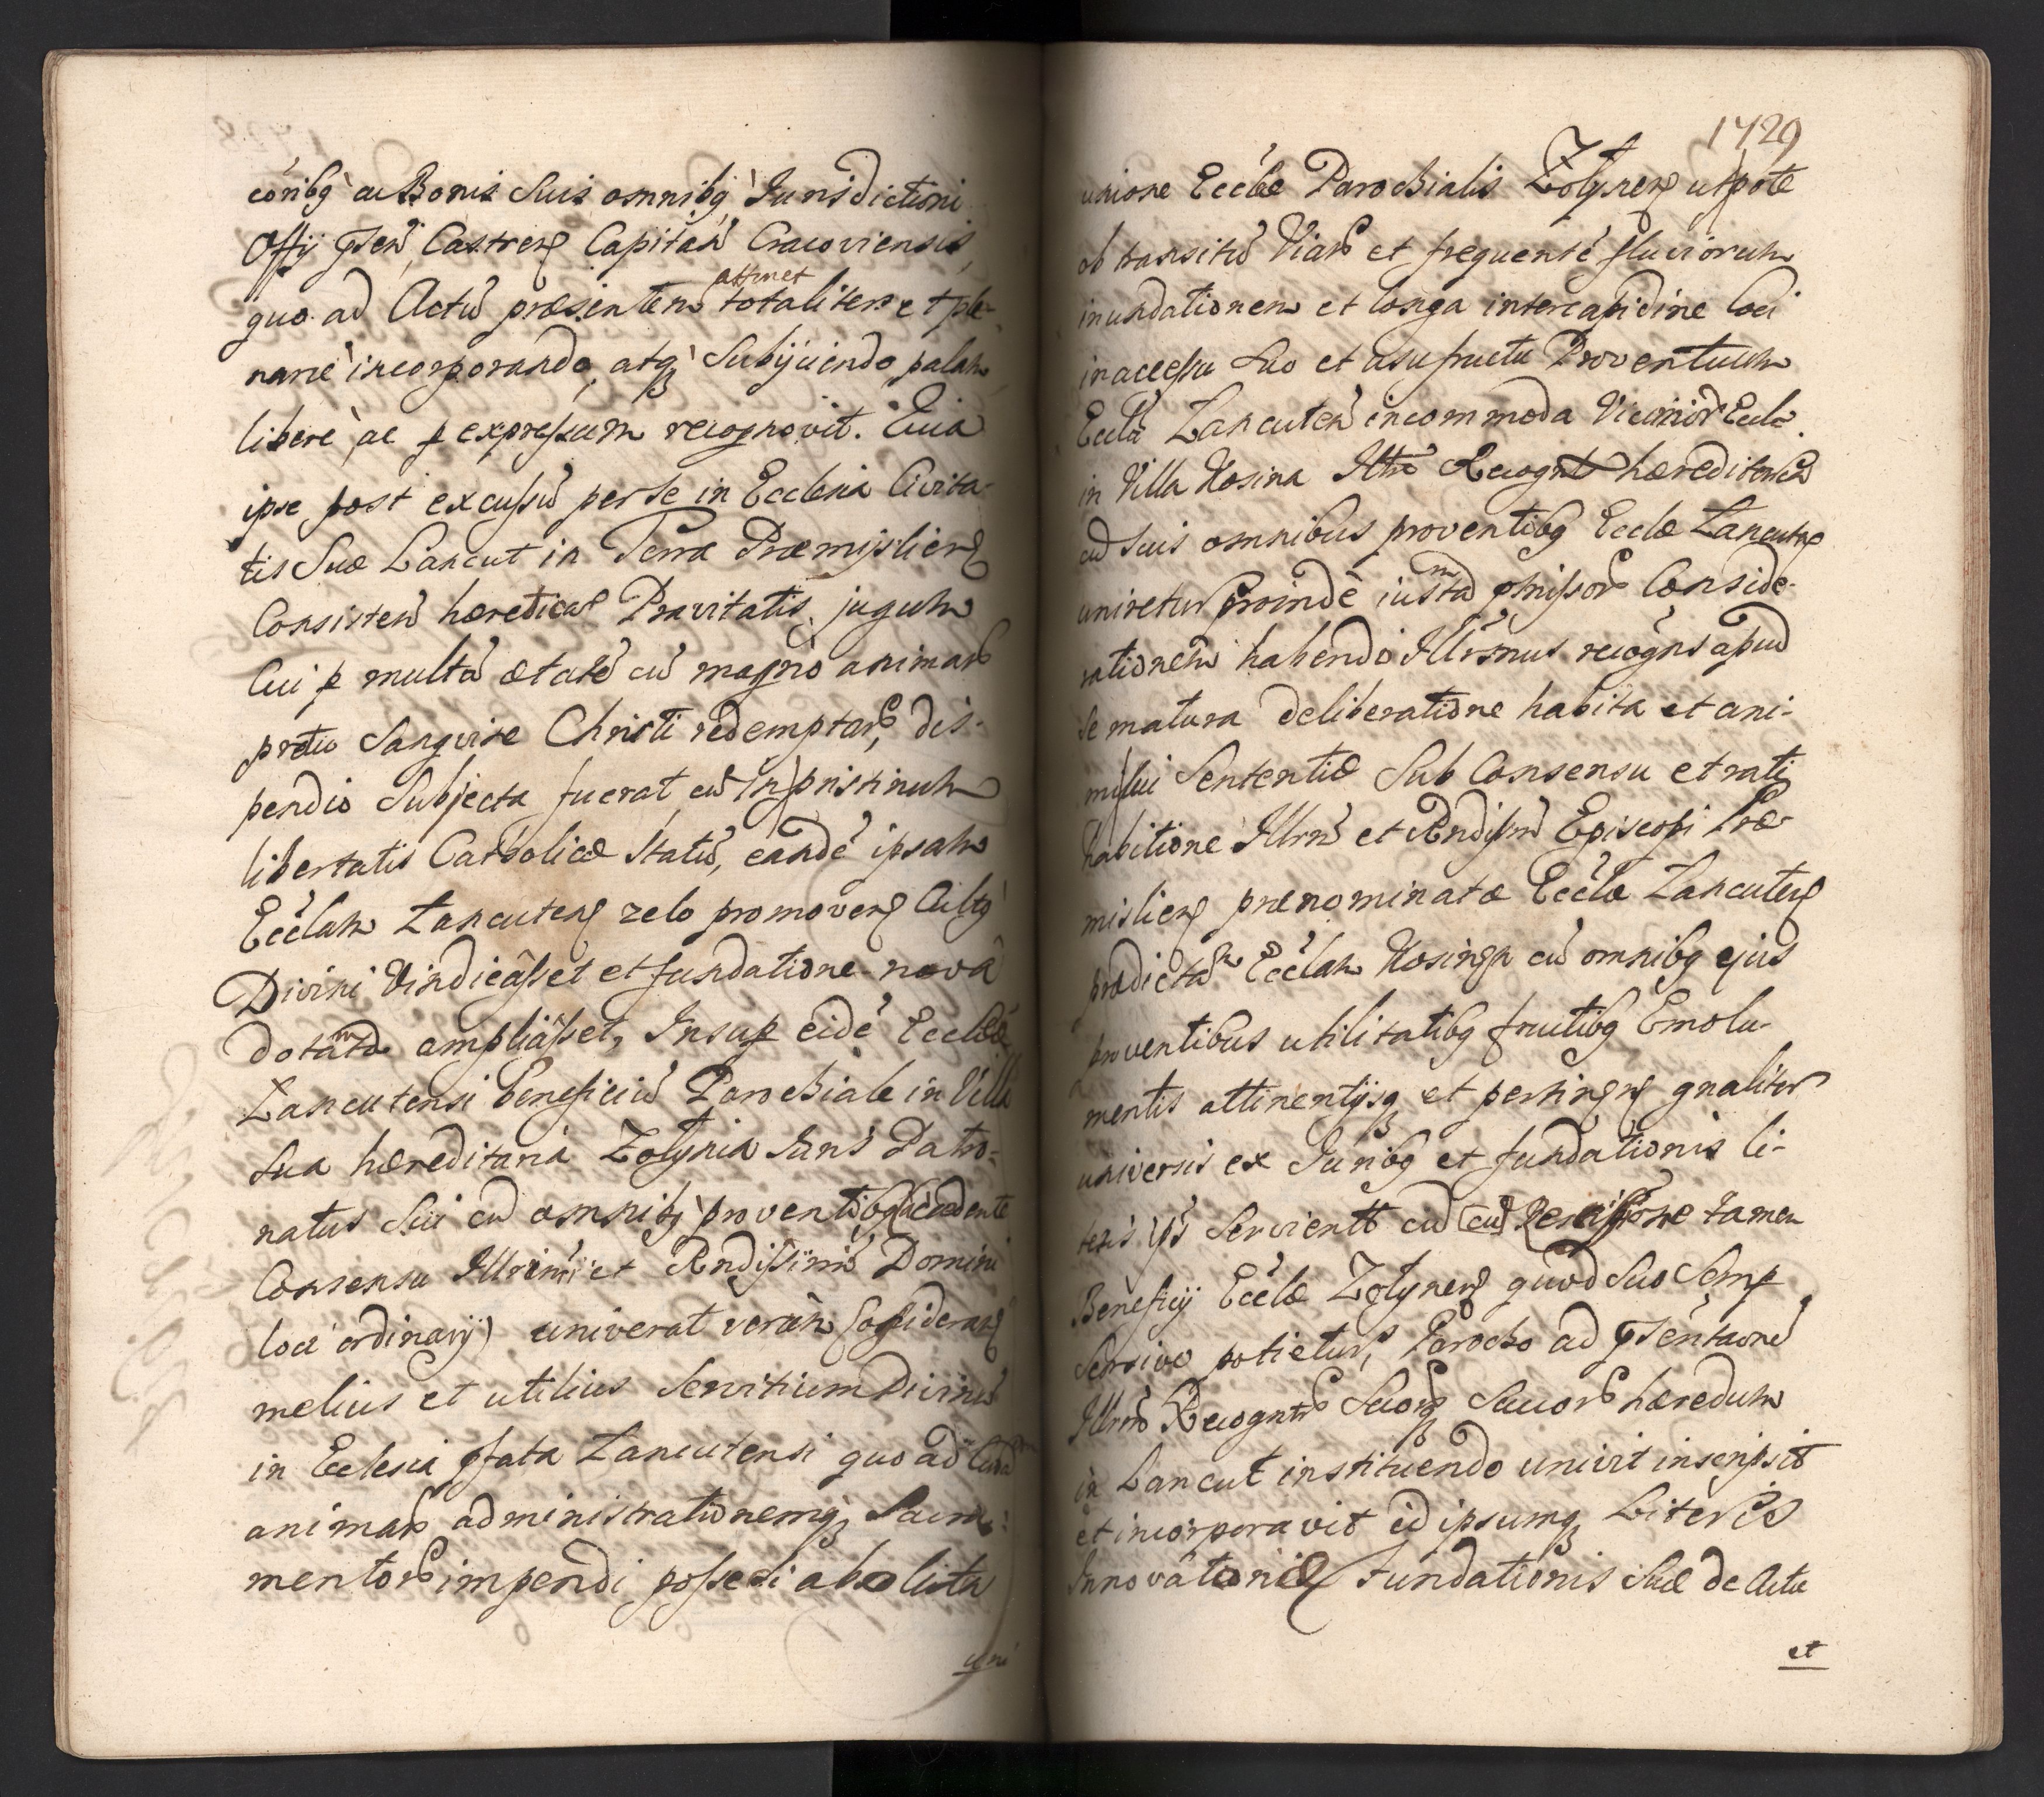 córibq ac Bonis Suis omnibq Jurisdictioni
Offij pseñ, Castreñ Capitañ Cracoviensis,
attinet
quo ad Actũ præsentem totaliter et ple-
nariè incorporando, atq Subijciendo, palam
liberè, ac p expressum recognovit. Quia
ipse post excussũ per se in Ecclesia Civita-
tis Suæ Lancut in Terra Præmisliens
Consisteñ hæreticæ Pravitatis, jugum
Cui p multã ætatẽ cũ magno animarũ
pretio Sanguine Christi redemptarũ, dis-
pendio Subjecta fuerat, eã in pristinum
libertatis Catholicæ Statũ, eandẽ ipsam
Ecclam Lancutens zelo promovens Cultq
Divini Vindicâsset et fundatione nova
dotatã ampliâsset, Insup eidẽ Ecclæ
Lancutensi beneficiũ Parochiale in Villa
sua hæreditaria Zolynia Iuris Patro-
natus Sui cũ omnibq proventibq (accedente
Consensu Illrimi et Rndissimi Domini
loci ordinarij) univerat verùm Considerans
melius et utilius Servitium Divinũ
in Ecclesia pfata Lancutensi quo ad Curã
animarũ administrationemq Sacra-
mentorũ impendi posse si absoluta
uni
1729
unione Ecclæ Parochialis Zolynens utpote
ob transitũ Viarũ et frequentẽ fluviorum
inundationem et longa intercapidine loci
in accessu suo et usufructu Proventuum
Ecclã Lancuteñ incommoda Vicinior Eccla
in Villa Kosina Illris Recognts hæreditaria
cũ suis omnibus proventibq Ecclæ Lancutens
uniretur Proindè iustã pmissorũ Conside-
rationem habendo Illrsmus recogns apud
se matura deliberatione habita et ani-
mi sui Sententia Sub Consensu et rati
habitione Illrm et Rndissm Episcopi Præ-
misliens prænominatæ Ecclæ Lancutens
prædictã Ecclam Kosinen cũ omnibq ejus
proventibus utilitatibq fructibq Emolu-
mentis attinentijsq et pertineñ gnaliter
universis ex Juribq et fundationis li-
teris ipsi Servientb cũ (cũ) Rescissione tamen
Beneficij Ecclæ Zolynens quod suo Semp
Servivo potietur, Parocho ad psentaonẽ
Illrm Recogntis Suorq Succorũ hæredum
in Lancut instituendo univit inscripsit
et incorporavit id ipsumq Literis
Innovationis Fundationis Suæ de Actu
et